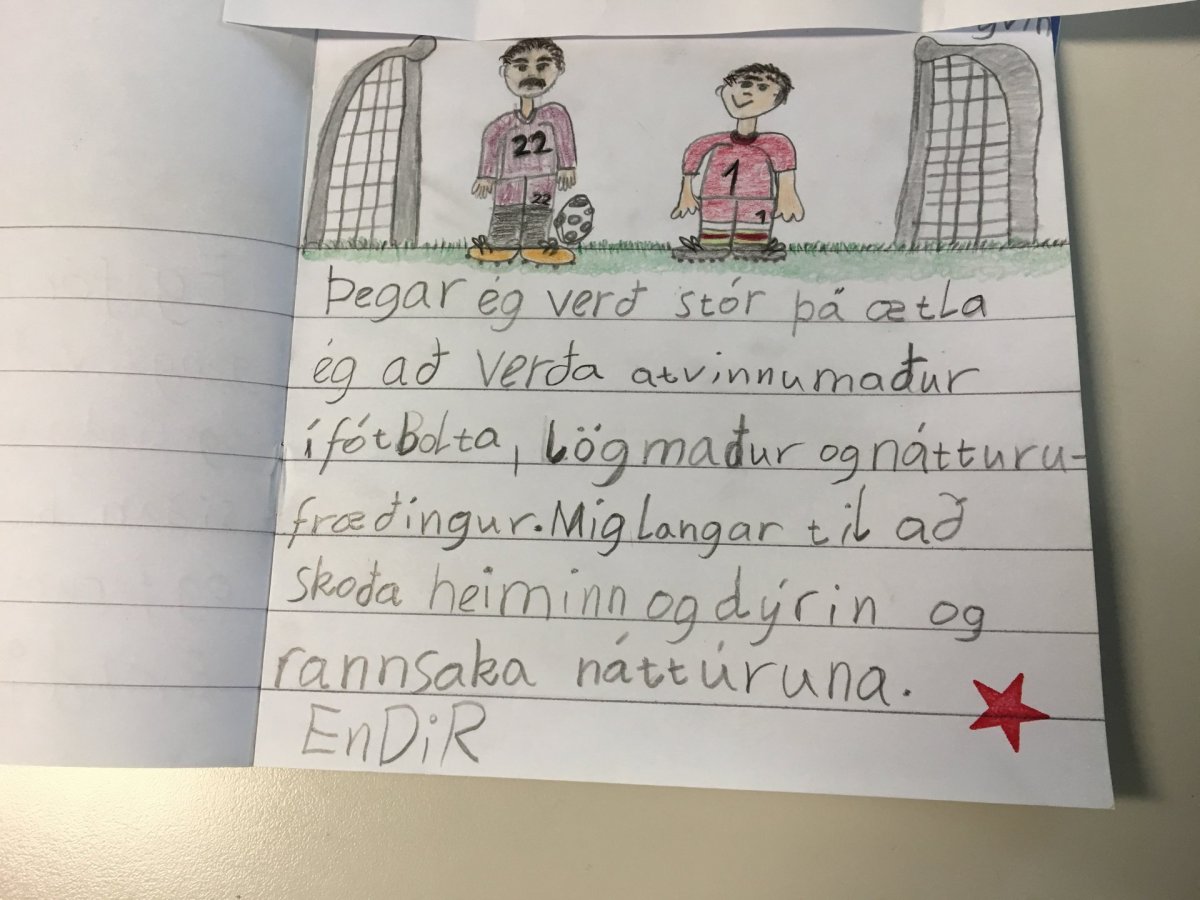 22
22
1
1
Þegar ég verð stór þá ætla
ég að verða atvinnumaður
í fótbolta, lögmaður og nátturu-
fræðingur. Mig langar til að
skoða heiminn og dýrin og
rannsaka náttúruna.
EnDiR